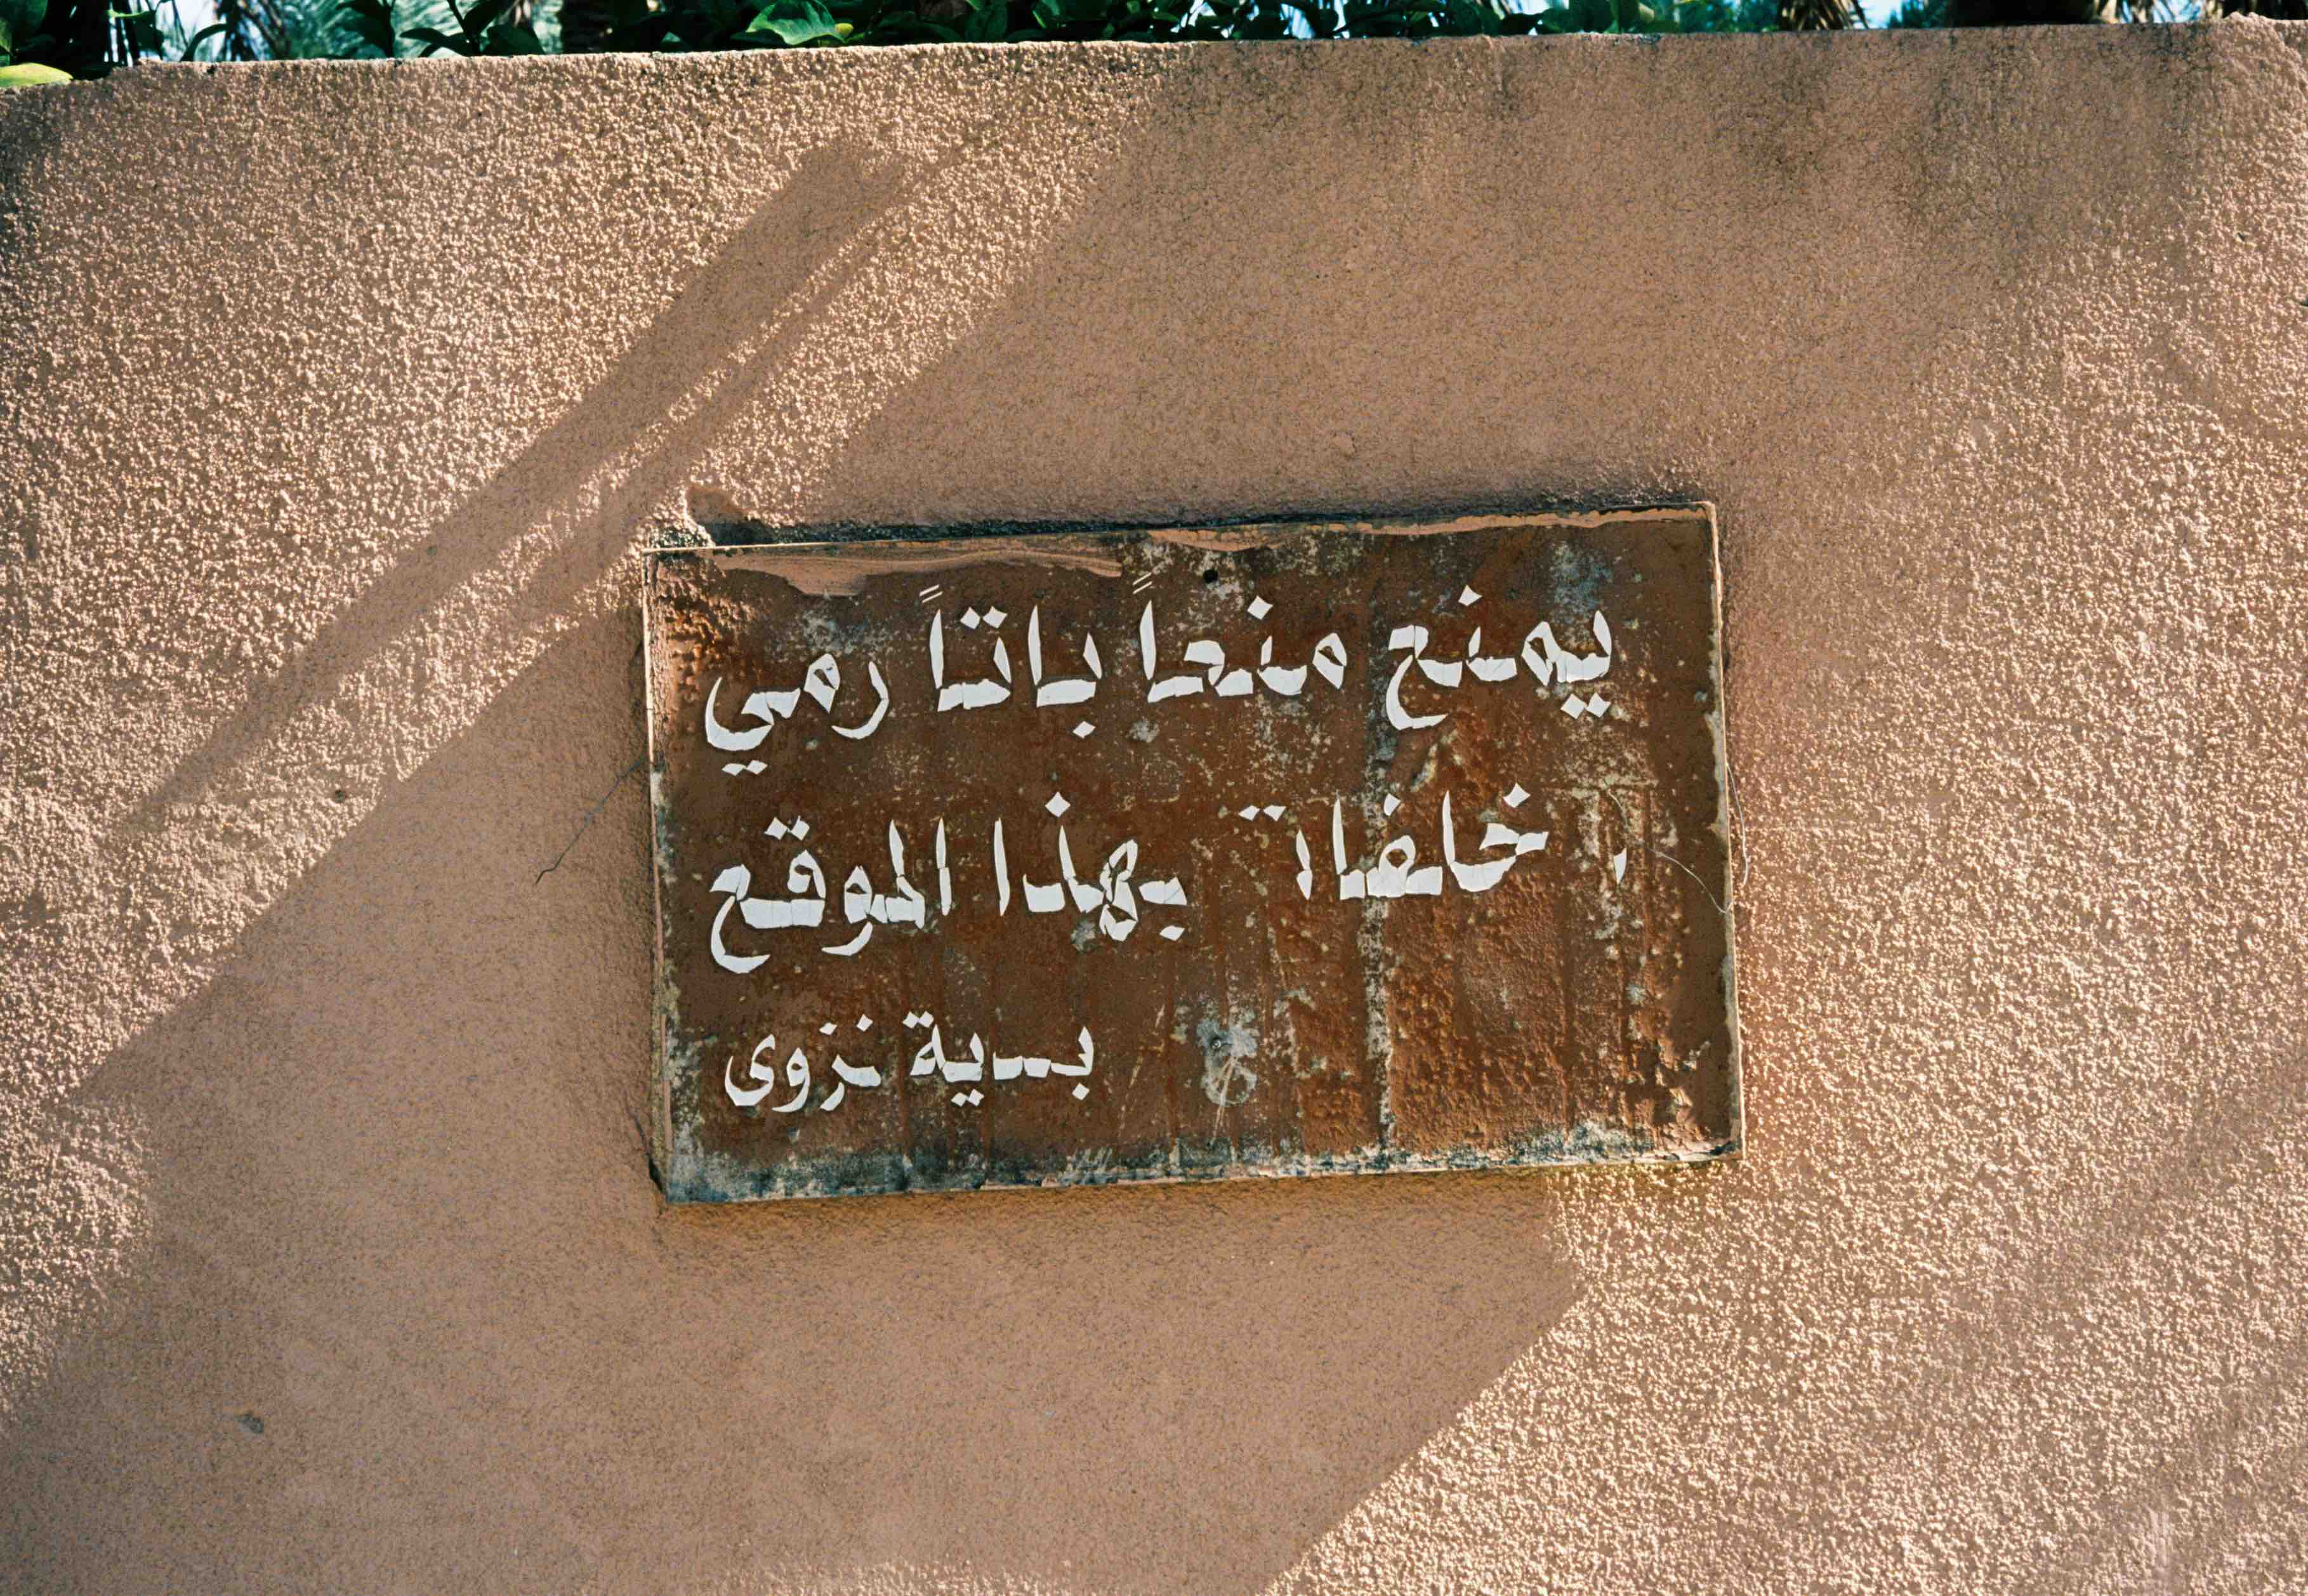 يمنع منعاً باتاً رمي
خلفات بهذا الموقع
بدية نزوى